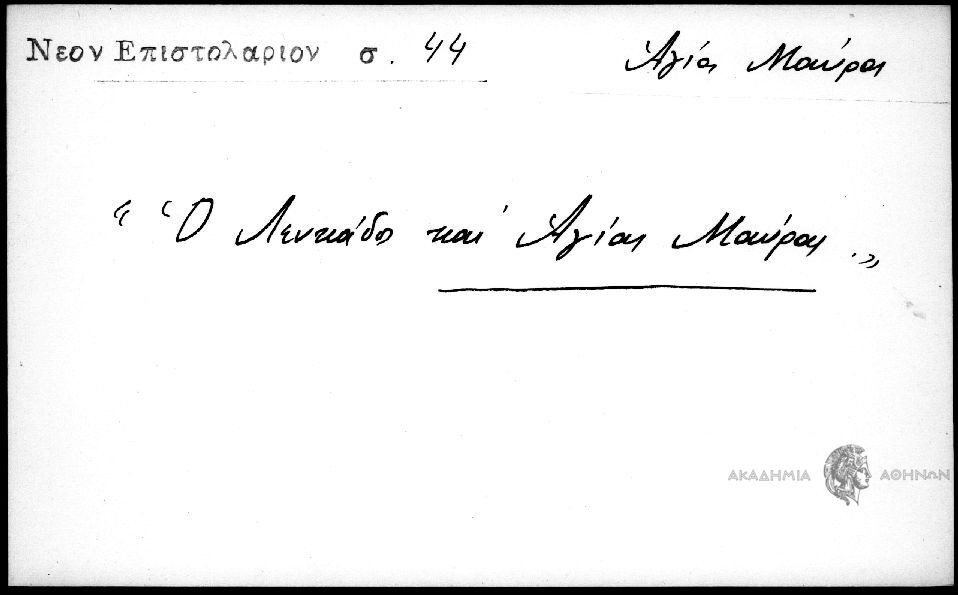 Νεον Επιστολαριον σ. 44
Ἁγίας Μαύρας
“ Ὁ Λευκάδος καὶ Ἁγίας Μαύρας . „
ΑΚΑΔΗΜΙΑ ΑΘΗΝΩΝ